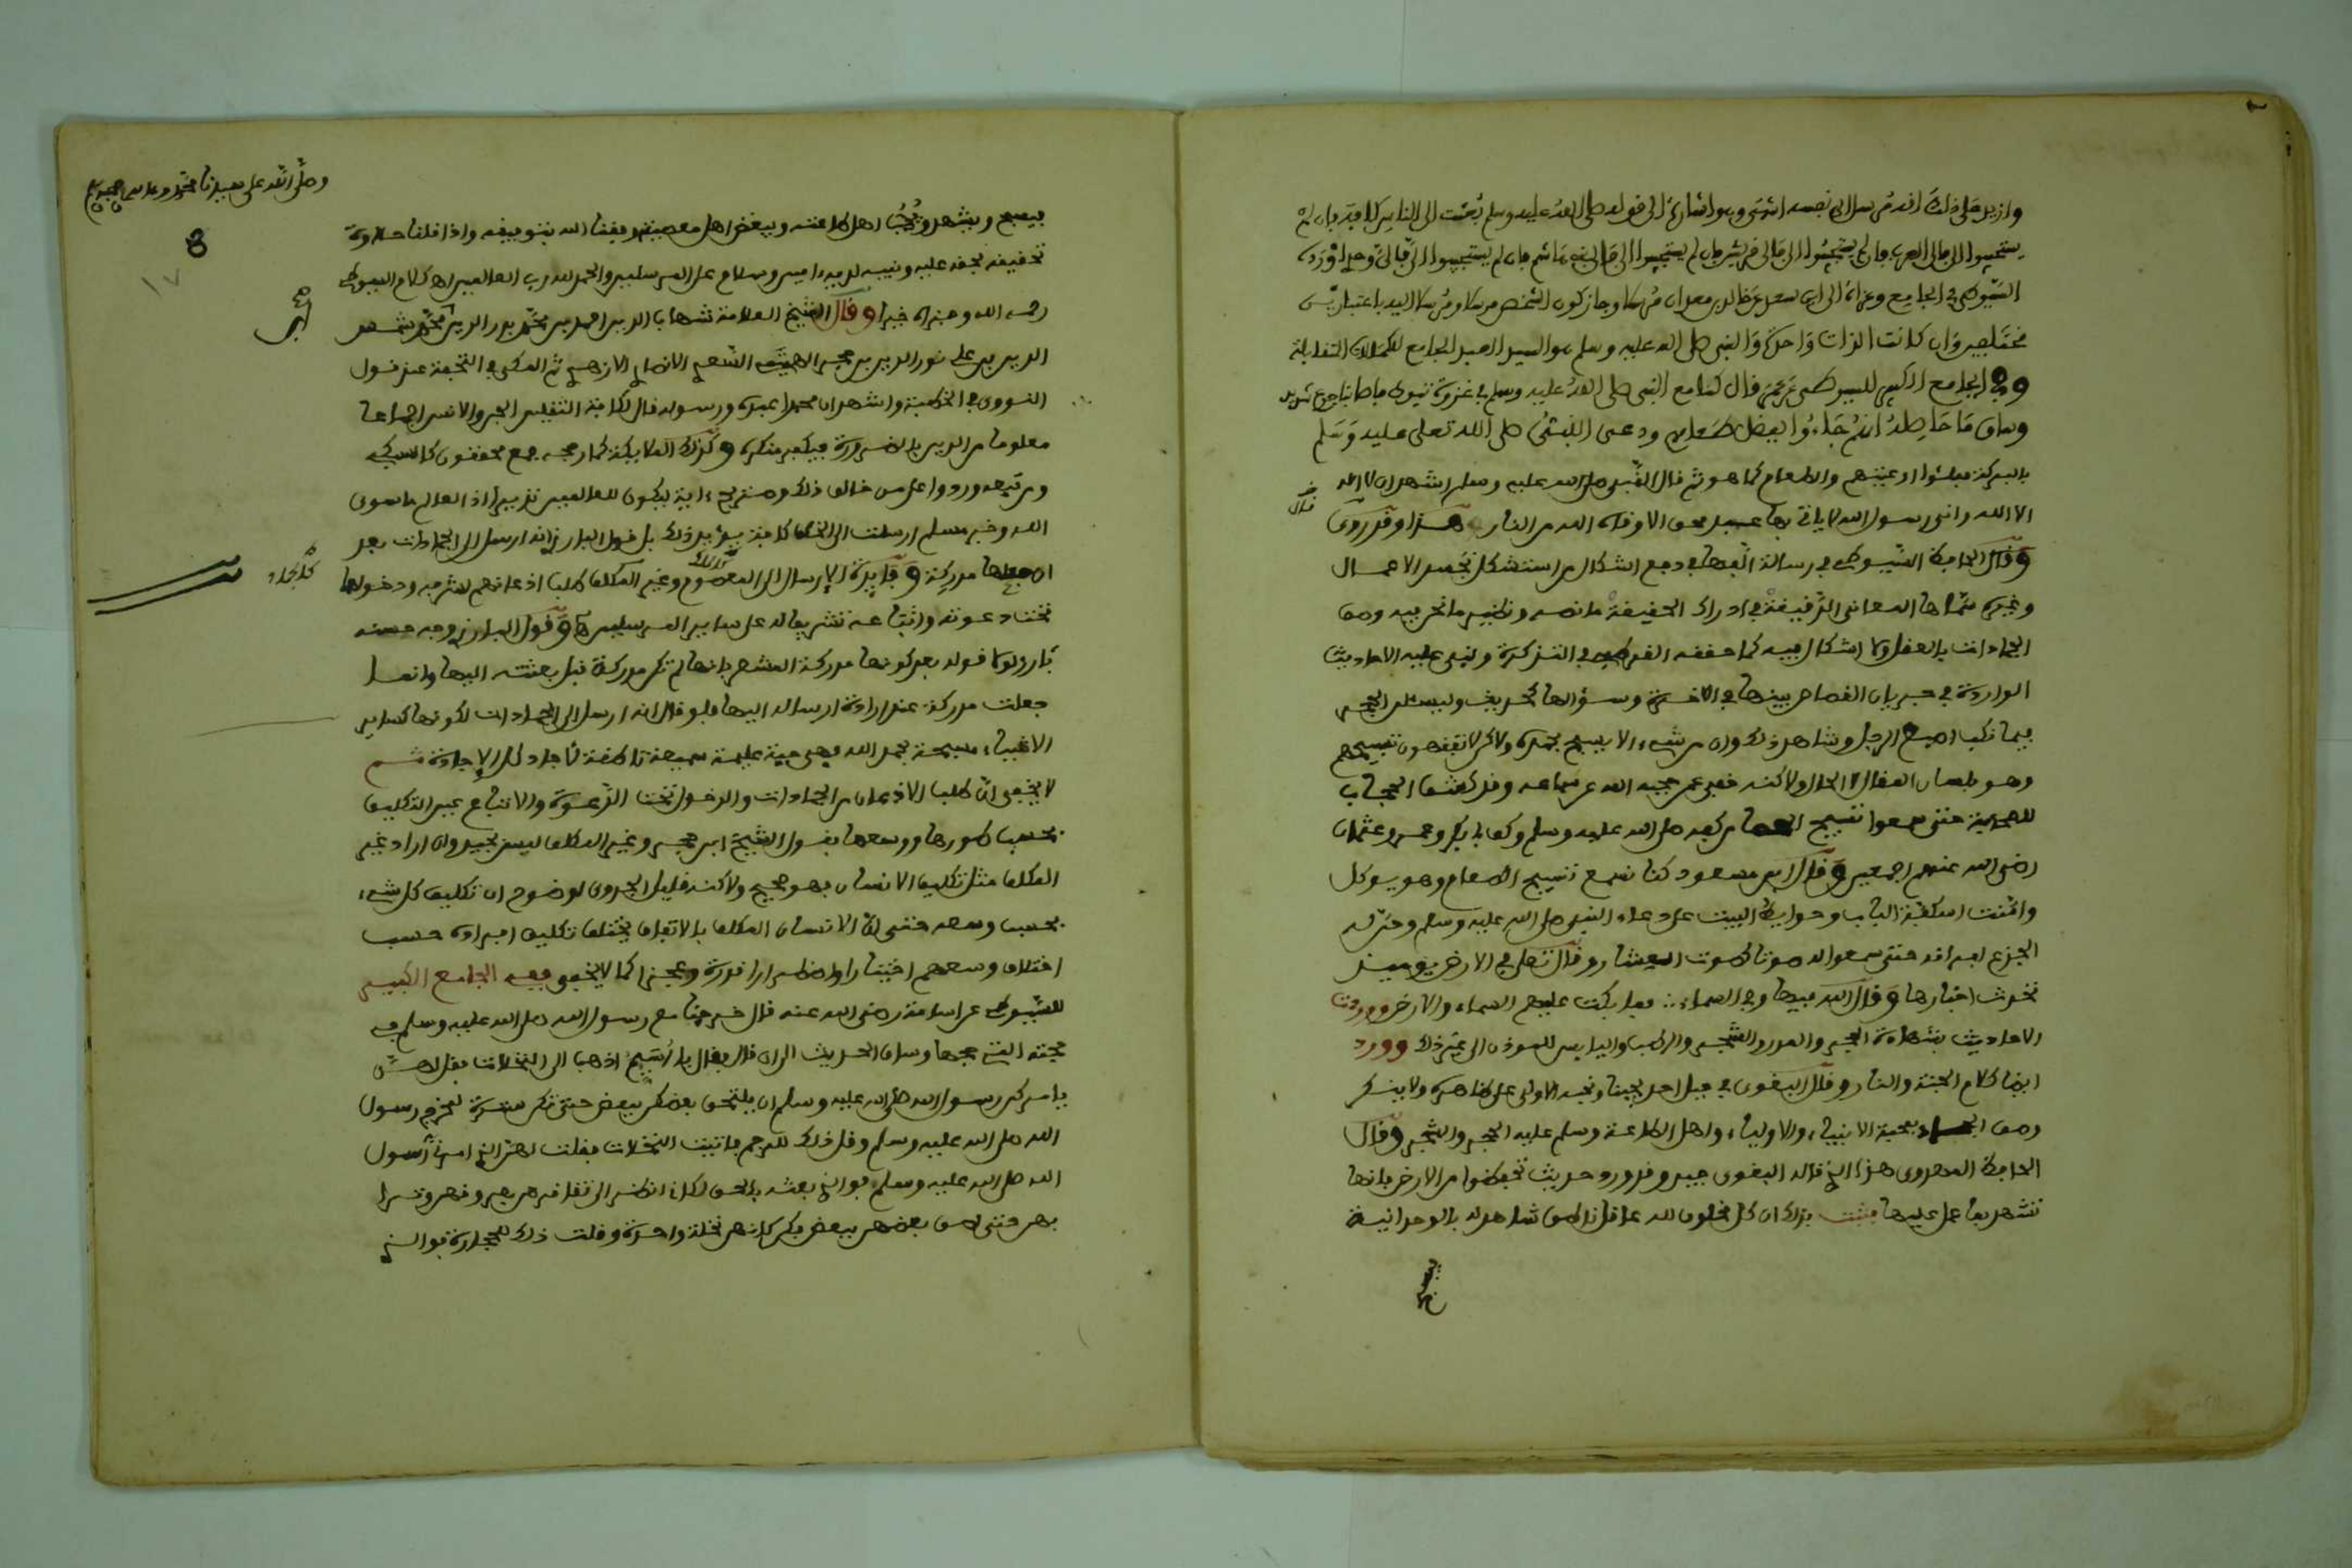 وازيد على ذلك انه مرسل الى نفسه انتهى وهو اشارة الى قوله صلى الله عليه وسلم بعثت الى الناس كافة فان لم
يستجيبوا الى فالى العرب فان لم يستجيبوا الى فالى قريش فان لم يستجيبوا الى فالى بنى هاشم فان لم يستجيبوا الى فالى وحدى اورده
السيوطى فى الجامع وعزاه الى ابن سعد عن خالد بن معدان مرسلا وجاز كون الشخص مرسلا ومرسلا اليه باعتبارين
مختلفين وان كانت الذات واحدة والنبى صلى الله عليه وسلم هو السيد العبد الجامع للكمالات المتقابلة
وفى الجامع الكبير للسيوطى عن عمر قال كنا مع النبى صلى الله عليه وسلم فى غزوة تبوك فاصابنا جوع شديد
وساق ما حاصله انهم جاءوا بفضل طعام ودعى النبى صلى الله تعلى عليه وسلم
بالبركة فملئوا اوعيتهم والطعام كما هو ثم قال النبى صلى الله عليه وسلم اشهد ان لا اله
الا الله وانى رسول الله لا ياتى بها عبد محق الا وقاه الله من النار هذا وقد روى
وقال الحافظ السيوطى فى رسالة الفها فى دفع اشكال من استشكل تجسد الاعمال
وغيره
الجمادات بالعقل ولا اشكال فيه كما حققه القرطبى فى التذكرة ونبى عليه الاحاديث
الواردة فى جريان القصاص بينها فى الاخرة وسؤالها كحديث وليسئلن الحجر
فيما نكب اصبع الرجل وشاهد ذلك وان من شىء الا يسبح بحمده ولاكن لا تفقهون تسبيحهم
وهو بلسان المقال لا الحال ولاكنه خفى عمن حجبه الله عن سماعه وقد كشف الحجاب
للصحابة حتى سمعوا تسبيح الحصا فى كفه صلى الله عليه وسلم وكف ابا بكر وعمر وعثمان
رضى الله عنهم اجمعين وقال ابن مسعود كنا نسمع تسبيح الطعام وهو يوكل
وامنت اسكفة الباب وحوايط البيت على دعاء النبى صلى الله عليه وسلم وحن له
الجذع لفراقه حتى سمعوا له صوتا كصوت العشار وقال تعلى فى الارض يوميذ
تحدث اخبارها وقال الله فيها وفى السماء فما بكت عليهم السماء والارض ووردت
الاحاديث بشهادة الحجر والمدر والشجر والرطب واليابس للموذن الى غير ذلك وورد
ايضا كلام الجنة والنار وقال البغوى فى جبل احد يحبنا ونحبه الاولى على ظاهره ولا ينكر
وصف الجماد بمحبة الانبياء والاولياء واهل الطاعة وسلم عليه الحجر والشجر وقال
الحافظ المنذرى هذا الذى قاله البغوى جيد وقد ورد حديث تحفظوا من الارض فانها
تشهد بما عمل عليها فثبت بذلك ان كل مخلوق لله عاقل ناطق شاهد له بالوحدانية
وصلى الله على سيدنا محمد وعلى اله وصحبه
١٧
فيسبح ويشهد ويحب اهل طاعته ويبغض اهل معصيته وفقنا الله بتوفيقه واذاقنا حلاوة
تحقيقه بحقه عليه ونبيه لديه امين وسلام على المرسلين والحمد لله رب العالمين اه كلام السيوطى
رحمه الله وجزاه خيرا وقال الشيخ العلامة شهاب الدين احمد بن محمد بدر الدين بن محمد شمس
الدين بن على نور الدين بن حجر الهيتمى السعدى الانصارى الازهرى ثم المكى فى التحفة عند قول
النووى فى الخطبة واشهد ان محمدا عبده ورسوله قال لكافة الثقلين الجن والانس اجماعا
معلوما من الدين بالضرورة فيكفر منكره وكذلك الملايكة كما رجحه جمع محققون كالسبكى
ومن تبعه وردوا على من خالف ذلك وصريح ءاية ليكون للعالمين نذيرا اذ العالم ما سوى
الله وخبر مسلم ارسلت الى الخلق كافة يؤيد ذلك بل قول البارزى انه ارسل الى الجمادات بعد
ان جعلها مدركة وفايدة الارسال الى المعصوم وغير المكلف طلب اذعانهم لشرفه ودخولهما
كالجماد
تحت دعوته واتباعه تشريفا له على ساير المرسلين اه وقول البارزى وجه حسنه
قوله بعد كونها مدركة المشعر بانها لم تكن مدركة قبل بعثته اليها وانما
جعلت مدركة عند ارادة ارساله اليها فلو قال انه ارسل الى الجمادات لكونها كساير
الاشياء مسبحة بحمد الله فهى حية عليمة سميعة ناطقة لافاد كل الافادة ثم
لا يخفى ان طلب الاذعان من الجمادات والدخول تحت الدعوة والاتباع عين التكليف
بحسب طورها ووسعها فقول الشيخ ابن حجر وغير المكلف ليس بجيد وان اراد غير
المكلف مثل تكليف الانسان فهو صحيح ولاكنه قليل الجدوى لوضوح ان تكليف كل شىء
بحسب وسعه حتى ان الانسان المكلف بالاتفاق يختلف تكليف افراده حسب
اختلاف وسعهم اختيارا واضطرارا قدرة وعجزا كما لا يخفى ففى الجامع الكبير
للسيوطى عن اسامة رضى الله عنه قال خرجنا مع رسول الله صلى الله عليه وسلم فى
حجته التى حجها وساق الحديث الى ان قال فقال يا اسيم اذهب الى النخلات فقل لهن
يامركن رسول الله صلى الله عليه وسلم ان يلتحق بعضكن ببعض حتى تكن سترة لمخرج رسول
الله صلى الله عليه وسلم وقل ذلك للرجم فاتيت النخلات فقلت لهن الذى امرنى رسول
الله صلى الله عليه وسلم فوالذى بعثه بالحق لكانى انظر الى تقافزهن بعروقهن وترابهن
حتى لصق بعضهن ببعض فكن كانهن نخلة واحدة وقلت ذلك للحجارة فوالذى